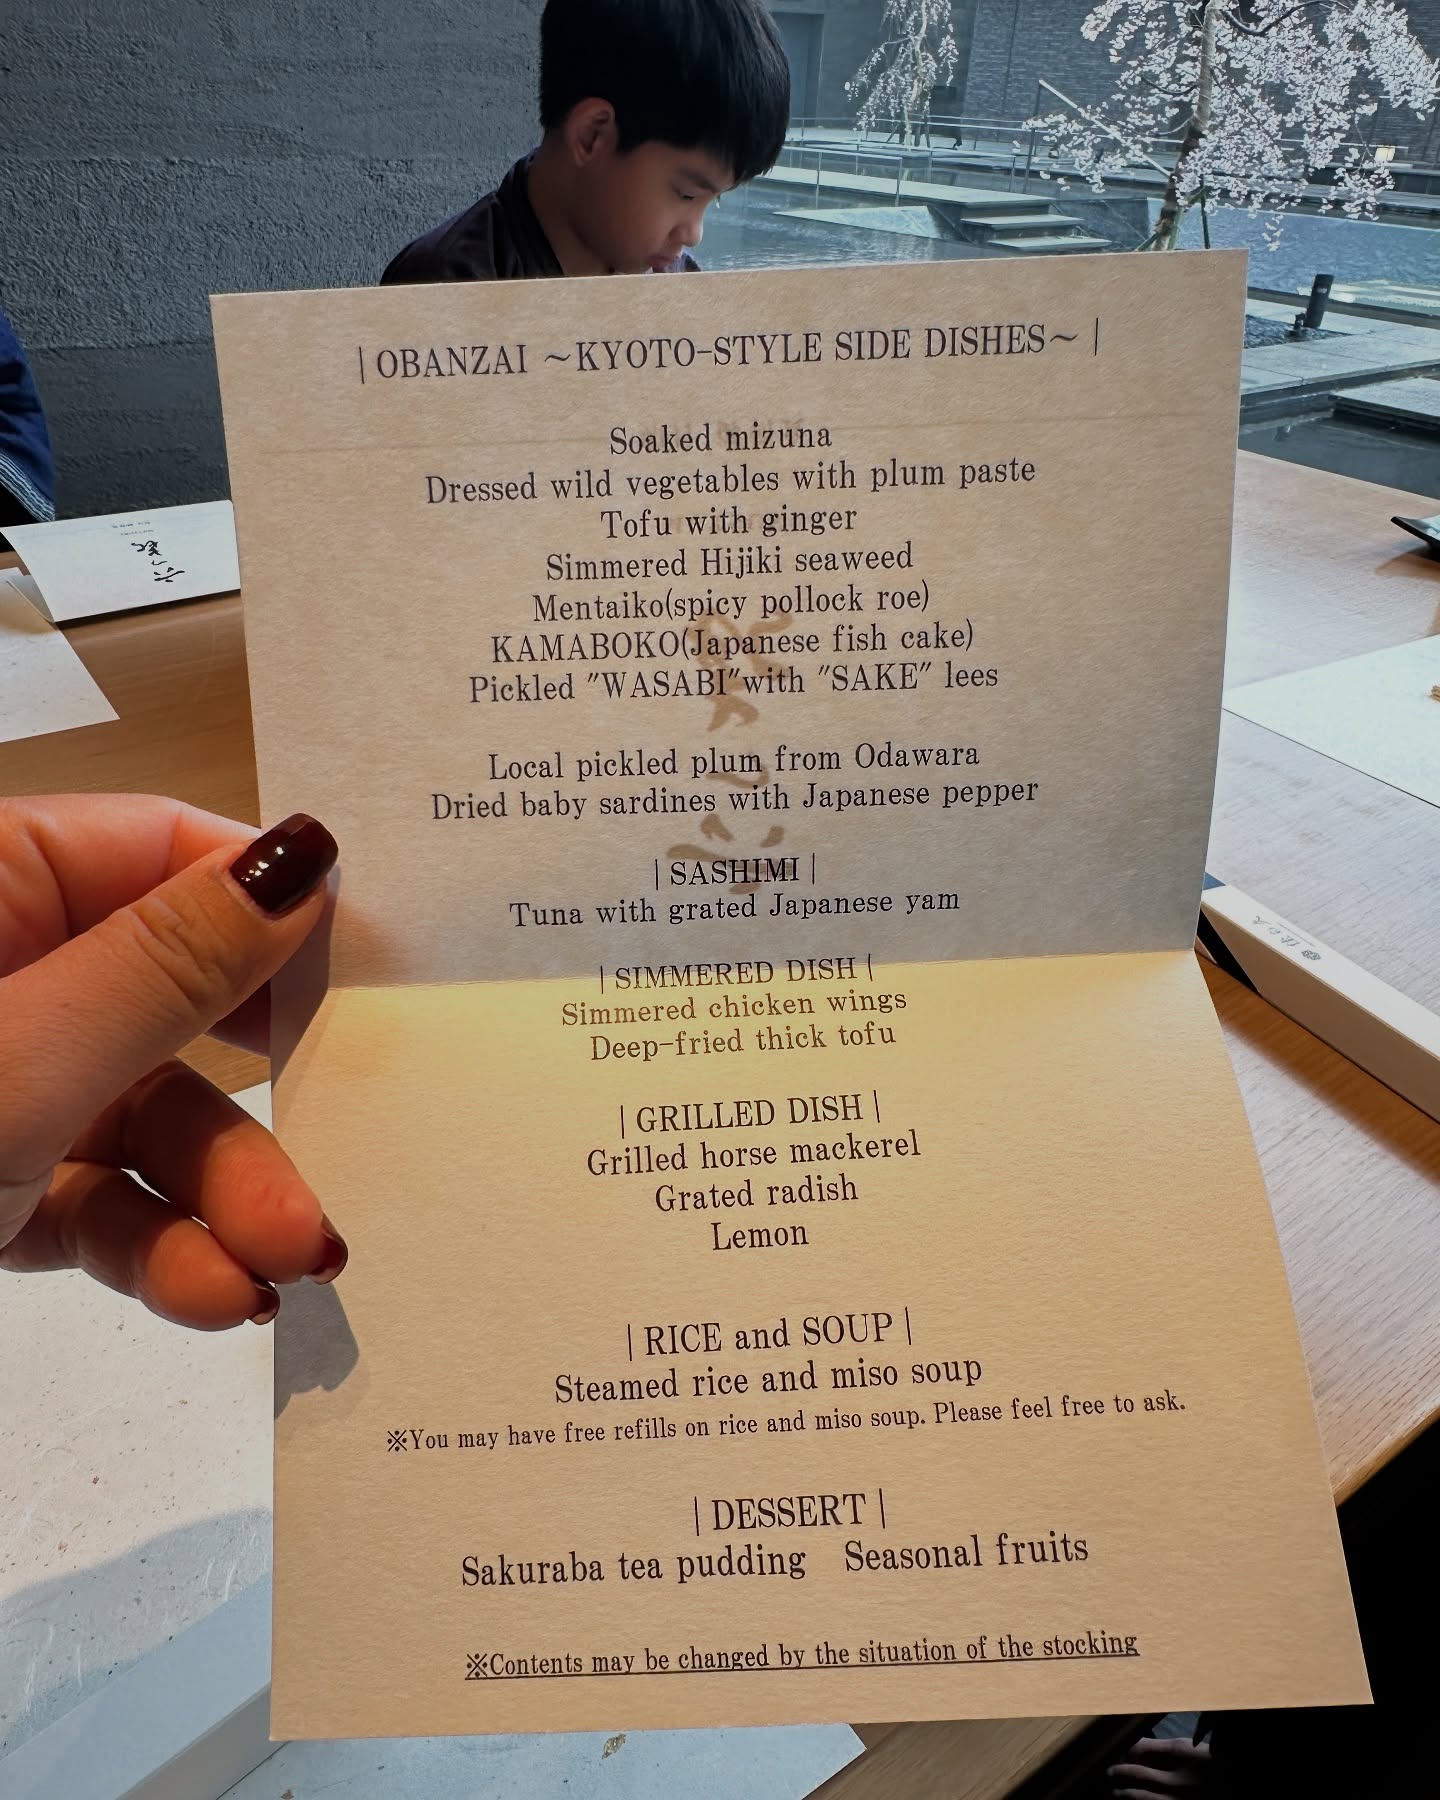 | OBANZAI ～KYOTO-STYLE SIDE DISHES～ |
Soaked mizuna
Dressed wild vegetables with plum paste
Tofu with ginger
Simmered Hijiki seaweed
Mentaiko(spicy pollock roe)
KAMABOKO(Japanese fish cake)
Pickled "WASABI"with "SAKE" lees
Local pickled plum from Odawara
Dried baby sardines with Japanese pepper
| SASHIMI |
Tuna with grated Japanese yam
| SIMMERED DISH |
Simmered chicken wings
Deep-fried thick tofu
| GRILLED DISH |
Grilled horse mackerel
Grated radish
Lemon
| RICE and SOUP |
Steamed rice and miso soup
※You may have free refills on rice and miso soup. Please feel free to ask.
| DESSERT |
Sakuraba tea pudding　Seasonal fruits
※Contents may be changed by the situation of the stocking